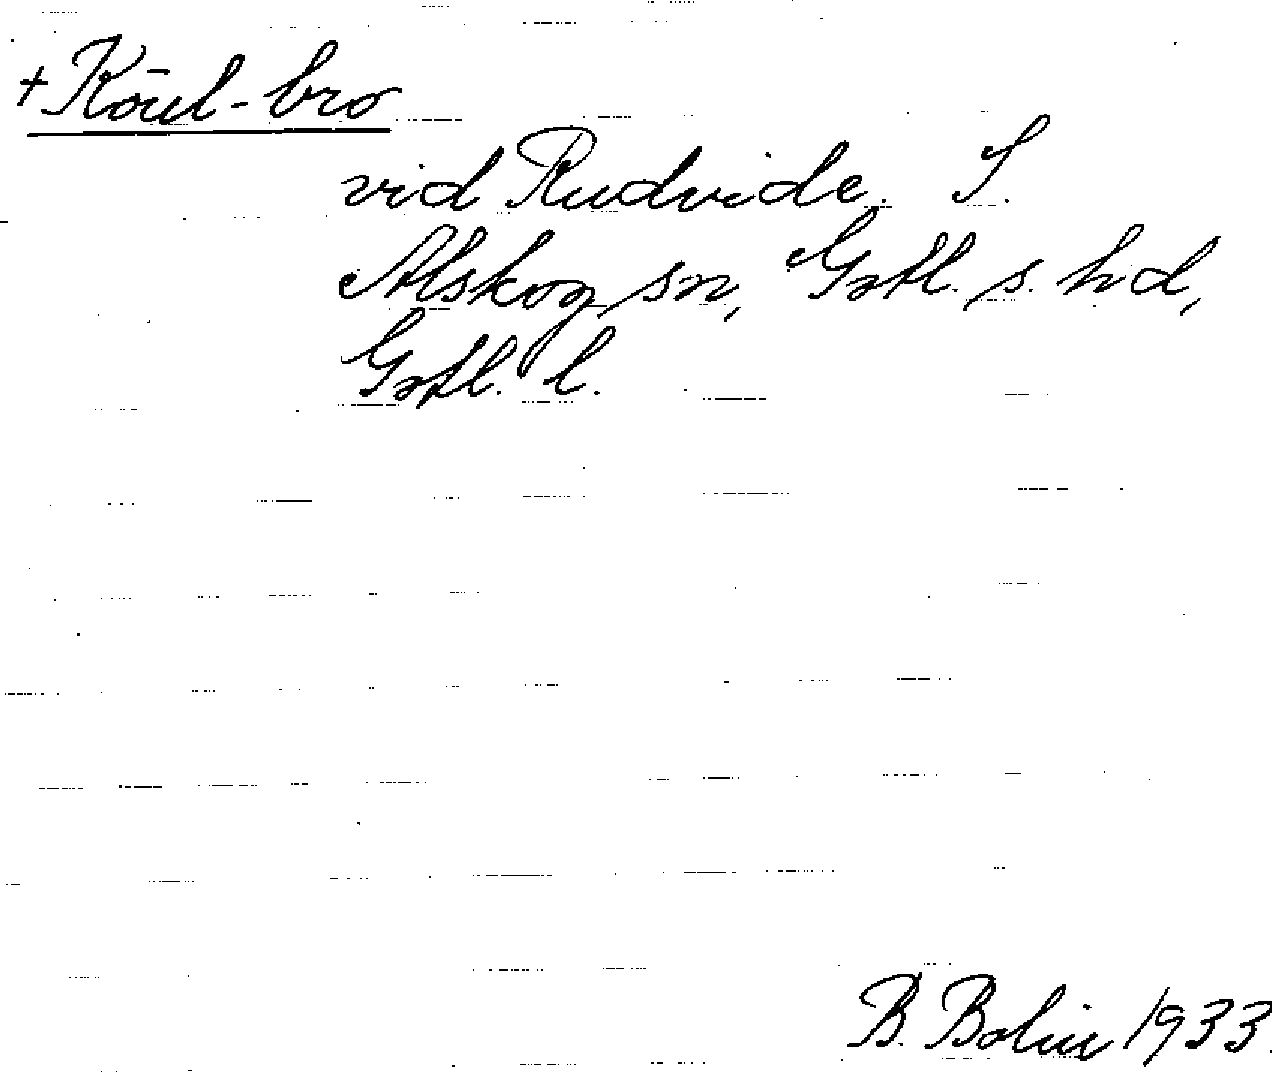 + Kōul-bro
vid Rudvide. S.
Alskog sn, Gotl. s. hd,
Gotl. l.
B. Bolin 1933.